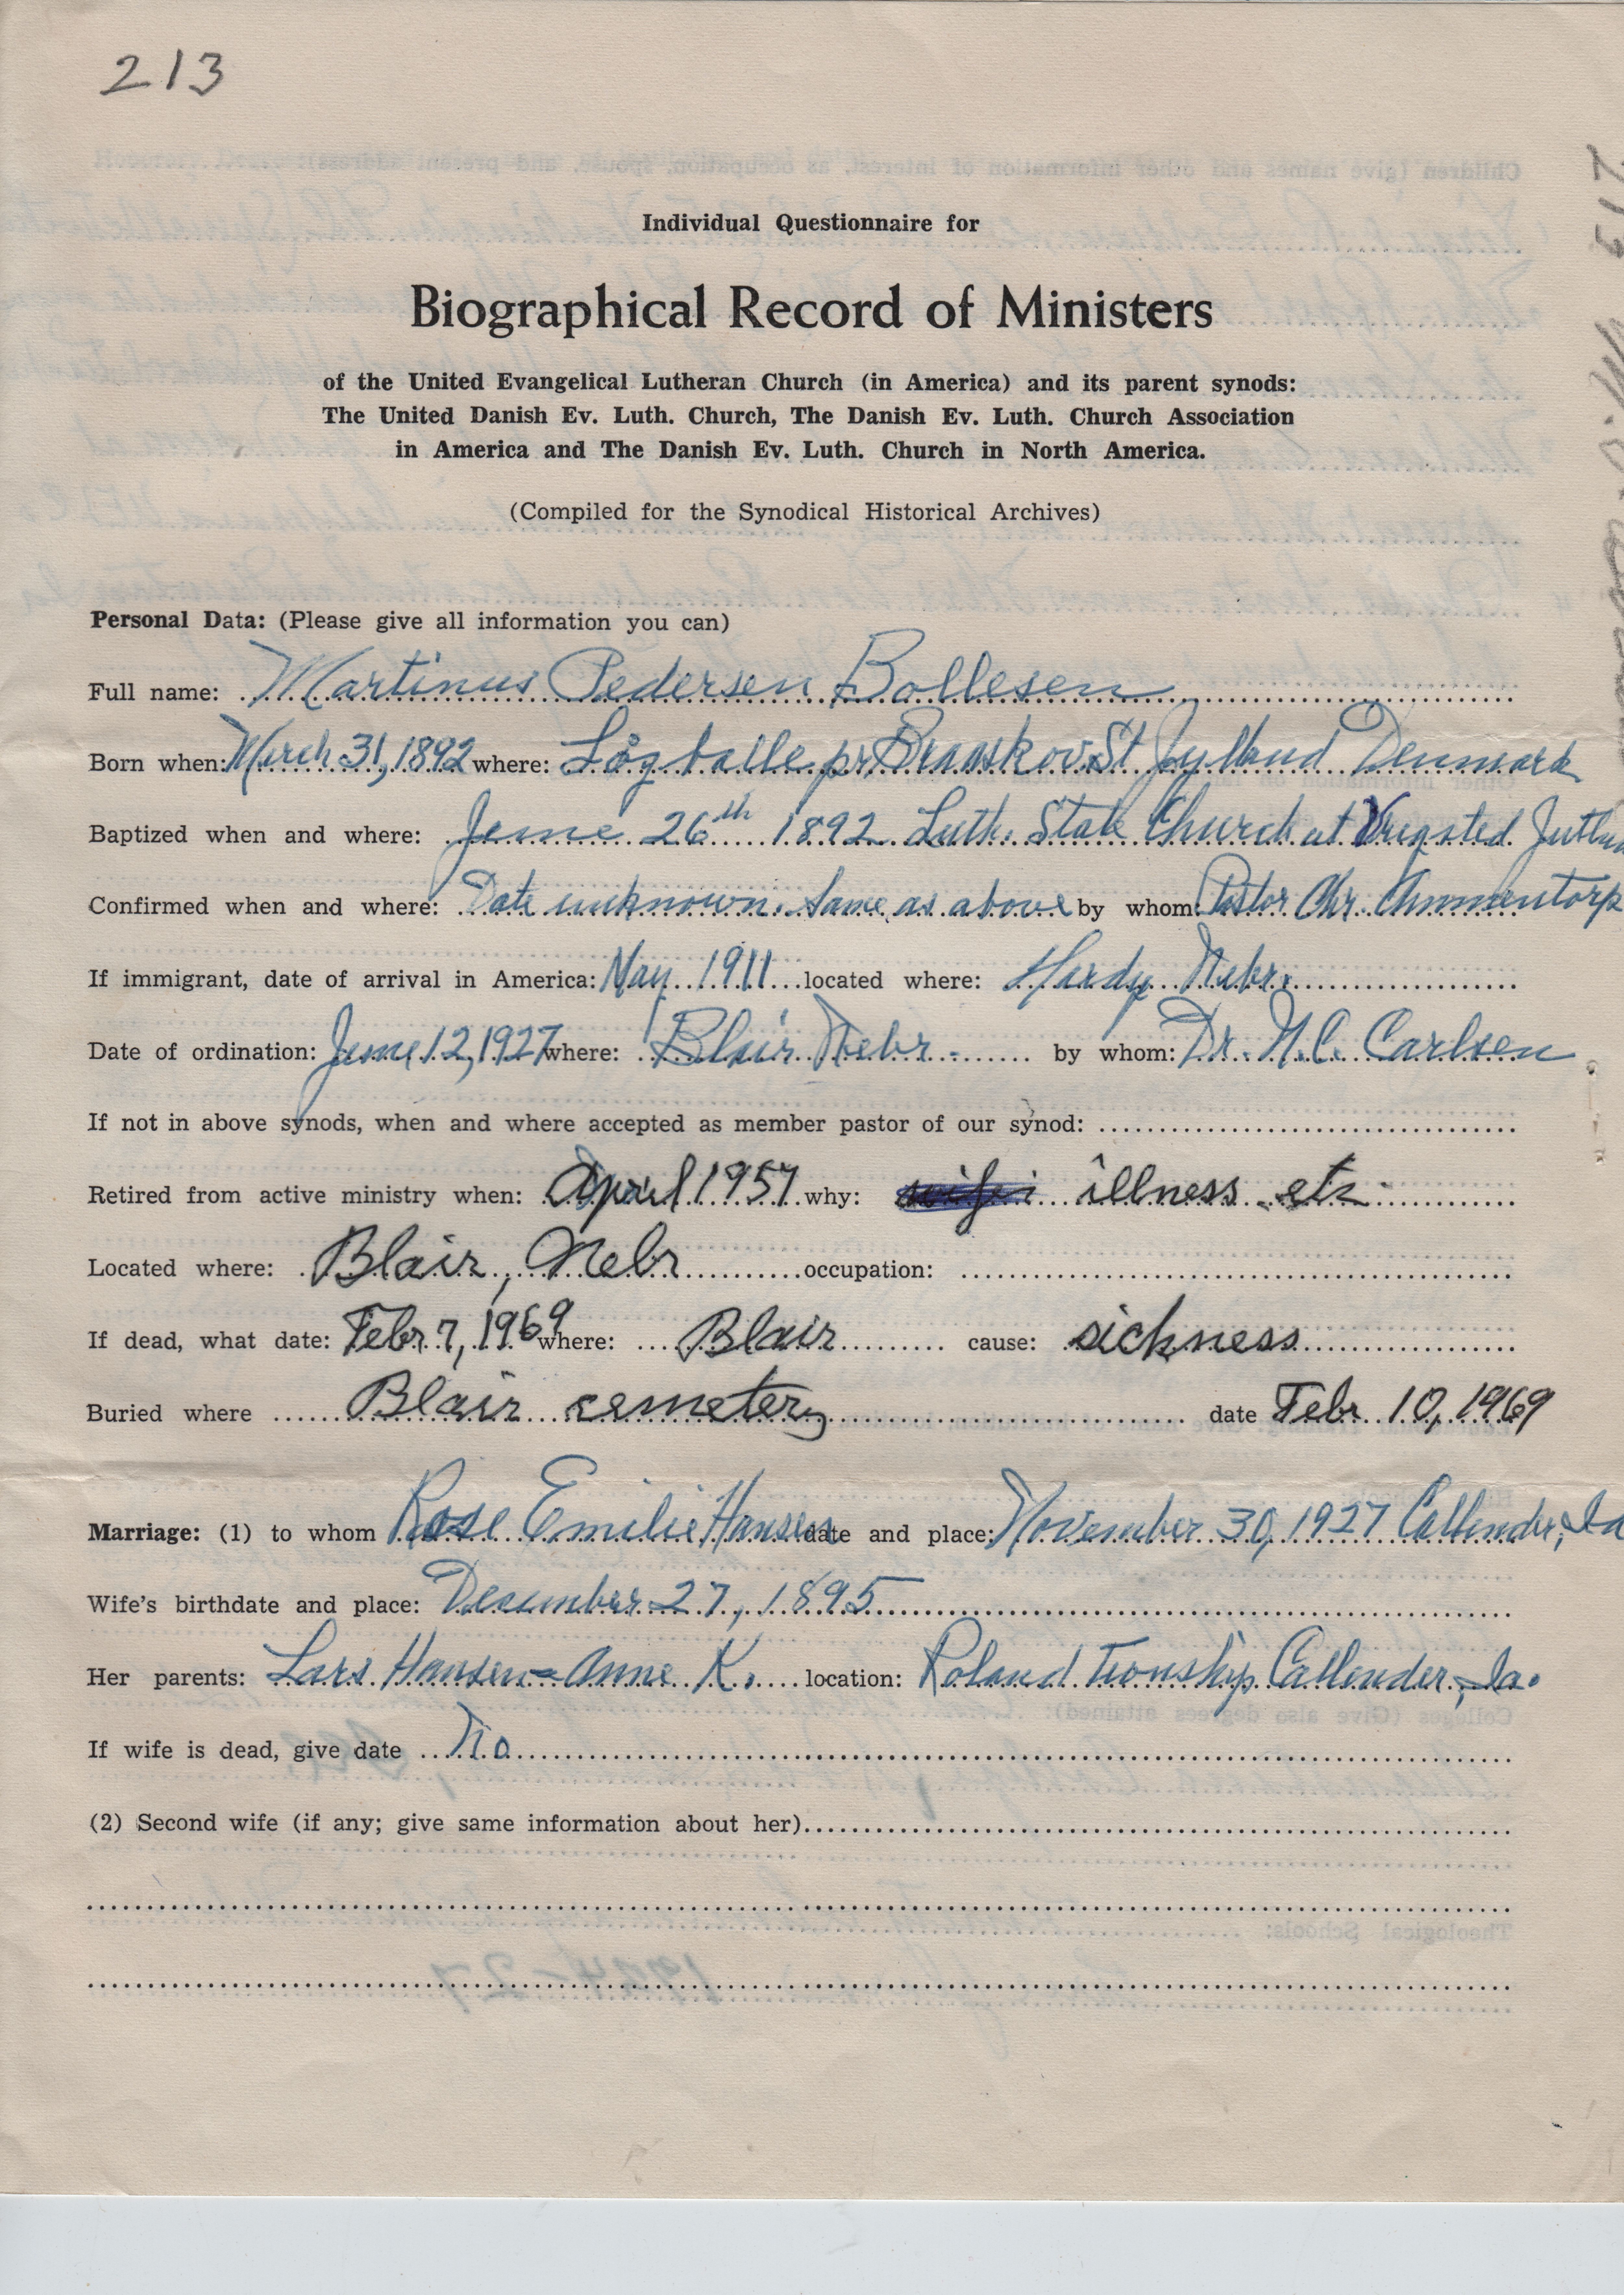 213
Individual Questionnaire for
Biographical Record of Ministers
of the United Evangelical Lutheran Church (in America) and its parent synods:
The United Danish Ev. Luth. Church, The Danish Ev. Luth. Church Association
in America and The Danish Ev. Luth. Church in North America.
(Compiled for the Synodical Historical Archives)
Personal Data: (Please give all information you can)
Full name: Martinus Pedersen Bollesen
Born when: March 31, 1892 where: Løgballe pr Braaskov St Jylland Denmark
Baptized when and where: June 26th 1892 Luth. State Church at Vrigsted
Confirmed when and where: Date unknown. Same as above by whom: Pastor Chr. Ammentorp
If immigrant, date of arrival in America: May 1911 located where: Hardy Nebr.
Date of ordination: June 12, 1927 where: Blair Nebr. by whom: Dr. N.C. Carlsen
If not in above synods, when and where accepted as member pastor of our synod:
Retired from active ministry when: April 1957 why: illness etc
Located where: Blair, Nebr occupation:
If dead, what date: Febr 7, 1969 where: Blair cause: sickness
Buried where Blair cemetery date Febr. 10, 1969
Marriage: (1) to whom Rose Emilie Hansen date and place: November 30, 1927 Callender, Ia
Wife's birthdate and place: December 27, 1895
Her parents: Lars Hansen - Anne K. location: Roland Township Callender, Ia.
If wife is dead, give date No
(2) Second wife (if any; give same information about her)